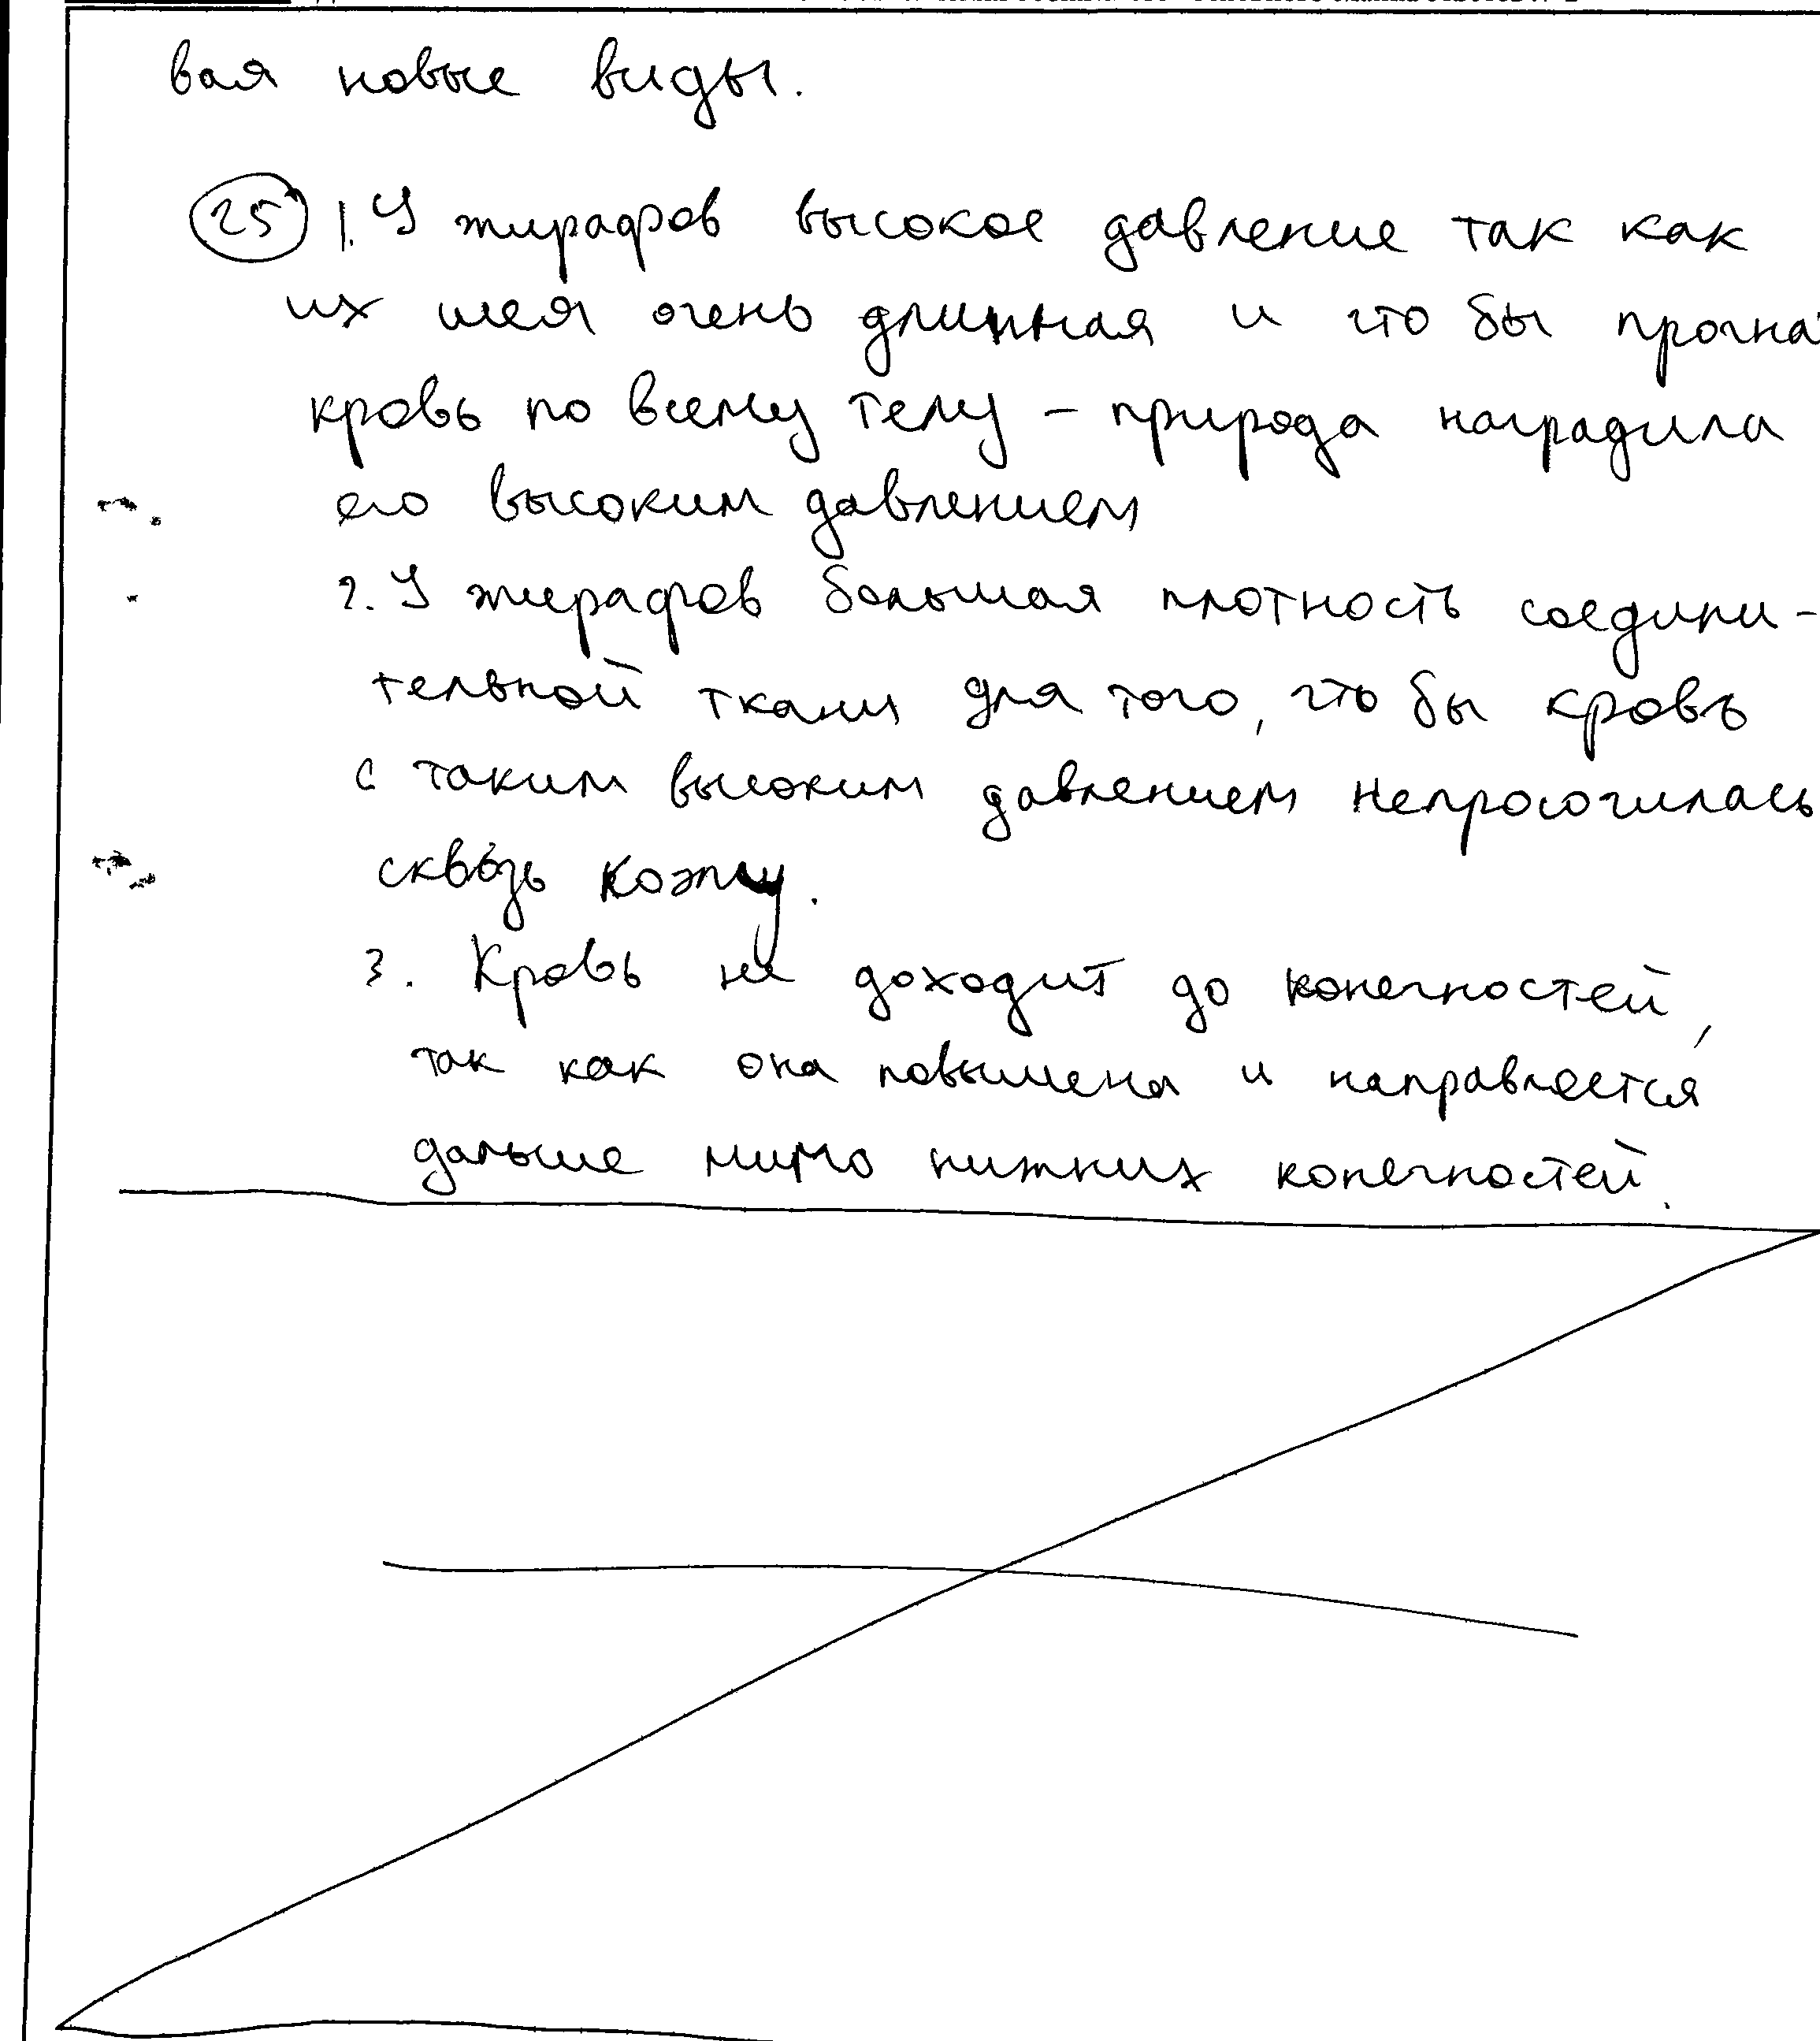 вая новые виды.
25 1. У жирафов высокое давление так как
их шея очень длинная и что бы прогна
кровь по всему телу – природа наградила
его высоким давлением
2. У жирафов большая плотность соедини-
тельной ткани для того, что бы кровь
с таким высоким давлением непросочилась
сквозь кожу.
3. Кровь не доходит до конечностей,
так как она повышена и направляется
дальше мимо нижних конечностей.